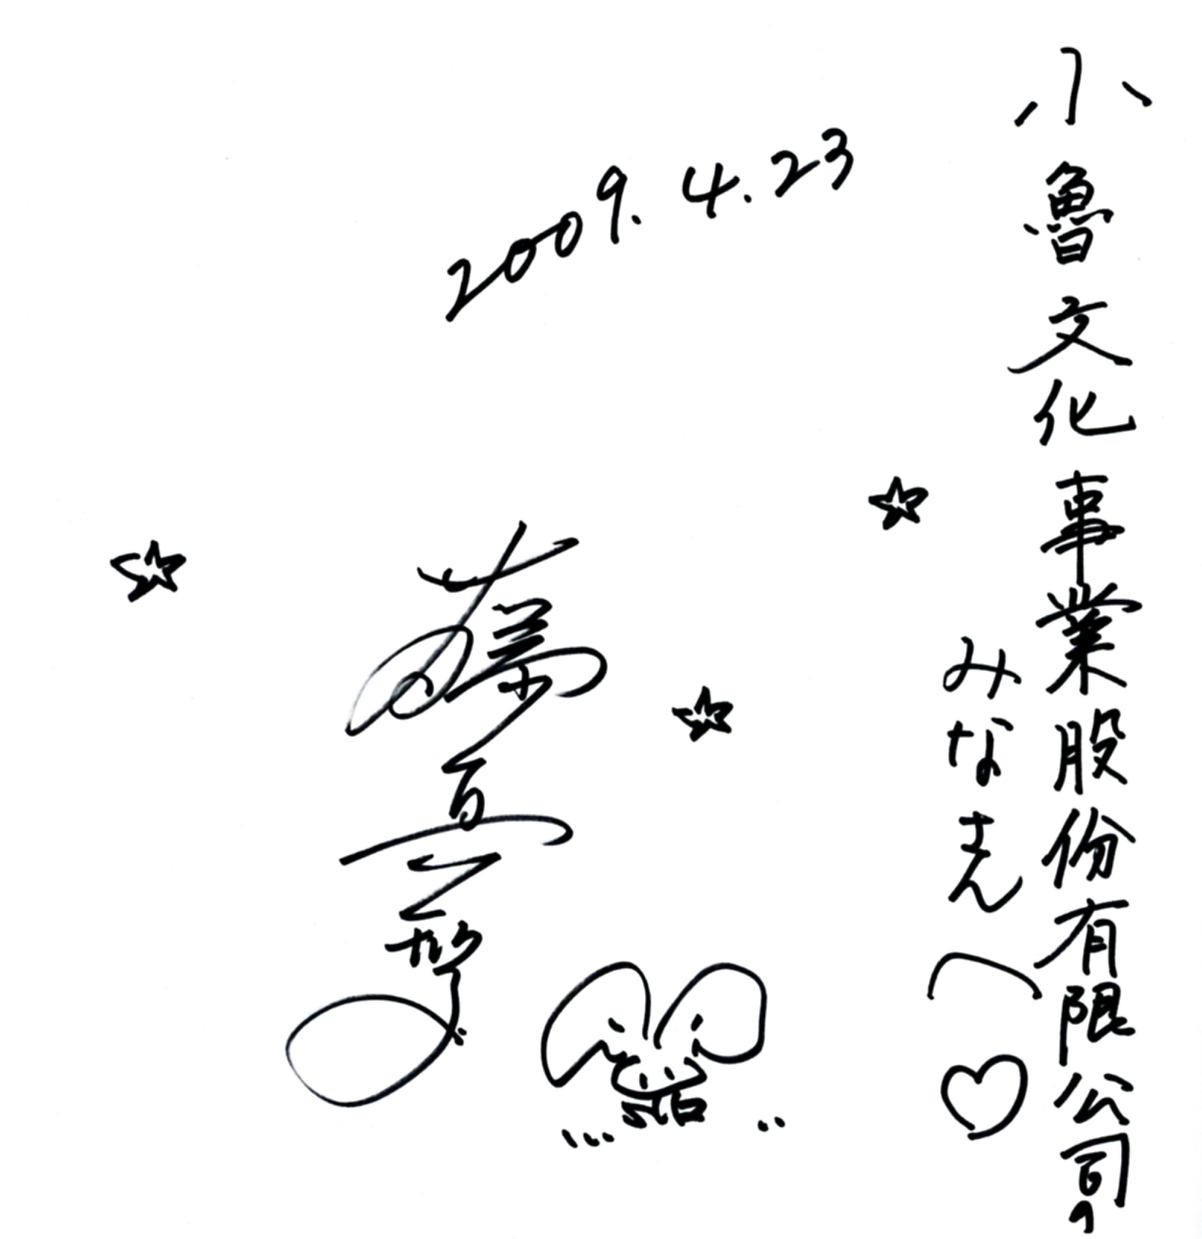 小魯文化事業股份有限公司の
みなさんへ♡
2009.4.23
藤真知子